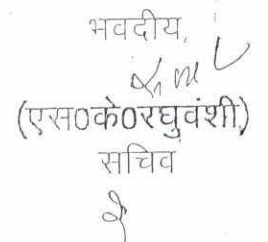 भवदीय,
(एस0के0रघुवंशी)
सचिव